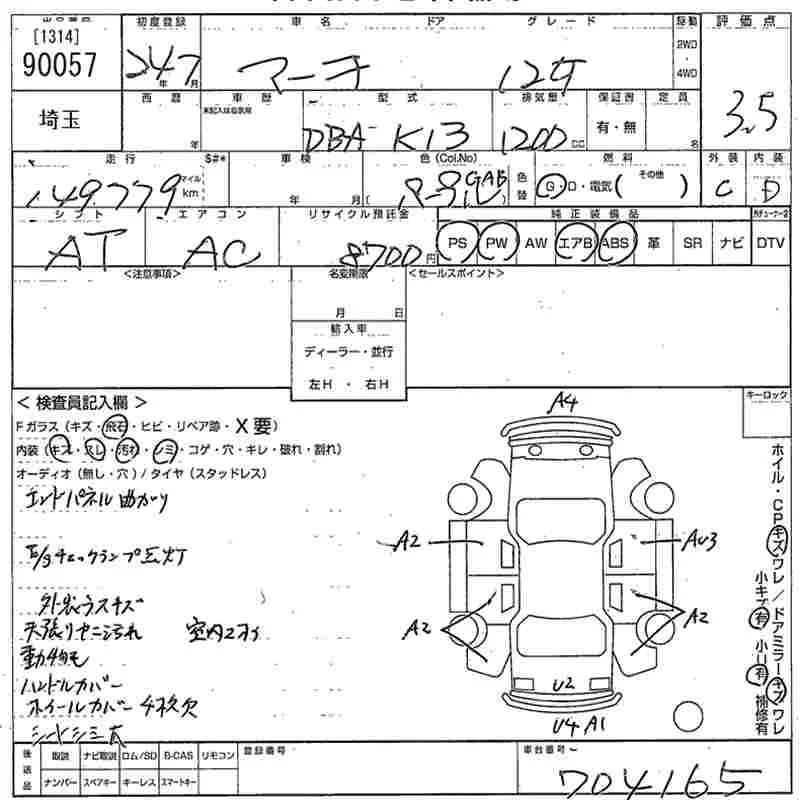 [1314]
90057
埼玉
初度登録 車名 ドア グレード 駆動 評価点
24年7月 マーチ 12 2WD・4WD 3.5
西暦 車歴 型式 排気量 保証書 定員
年 未記入は自家用 DBA-K13 1200CC 有・無 名
走行 S#* 車検 色(Col.No) 色替 燃料 その他 外装 内装
149779 マイル km 年 月( パープル GAB G・D・電気( ) C D
シフト エアコン リサイクル預託金 純正装備品
AT AC 8700円 PS PW AW エアB ABS 革 SR ナビ DTV
<注意事項> 名変期限 <セールスポイント>
月 日
輸入車
ディーラー・並行
左H・右H
< 検査員記入欄 > キーロック
Fガラス(キズ・飛石・ヒビ・リペア跡・X要)
内装(キズ・スレ・汚れ・シミ・コゲ・穴・キレ・破れ・割れ)
オーディオ(無し・穴)/タイヤ(スタッドレス)
エンドパネル曲がり
E/gチェックランプ点灯
外装うすキズ
天張りヤニ汚れ 室内
動物毛
ハンドルカバー
ホイールカバー 欠
シートシミ大
A4
A2 AU3
A2 A2
U2
U4 A1
ホイル・CPキズワレ/ドアミラーキズワレ
小キズ有 小U有 補修有
後送品 取説 ナビ取説 ロム/SD B-CAS リモコン 登録番号 車台番号
ナンバー スペアキー キーレス スマートキー 704165